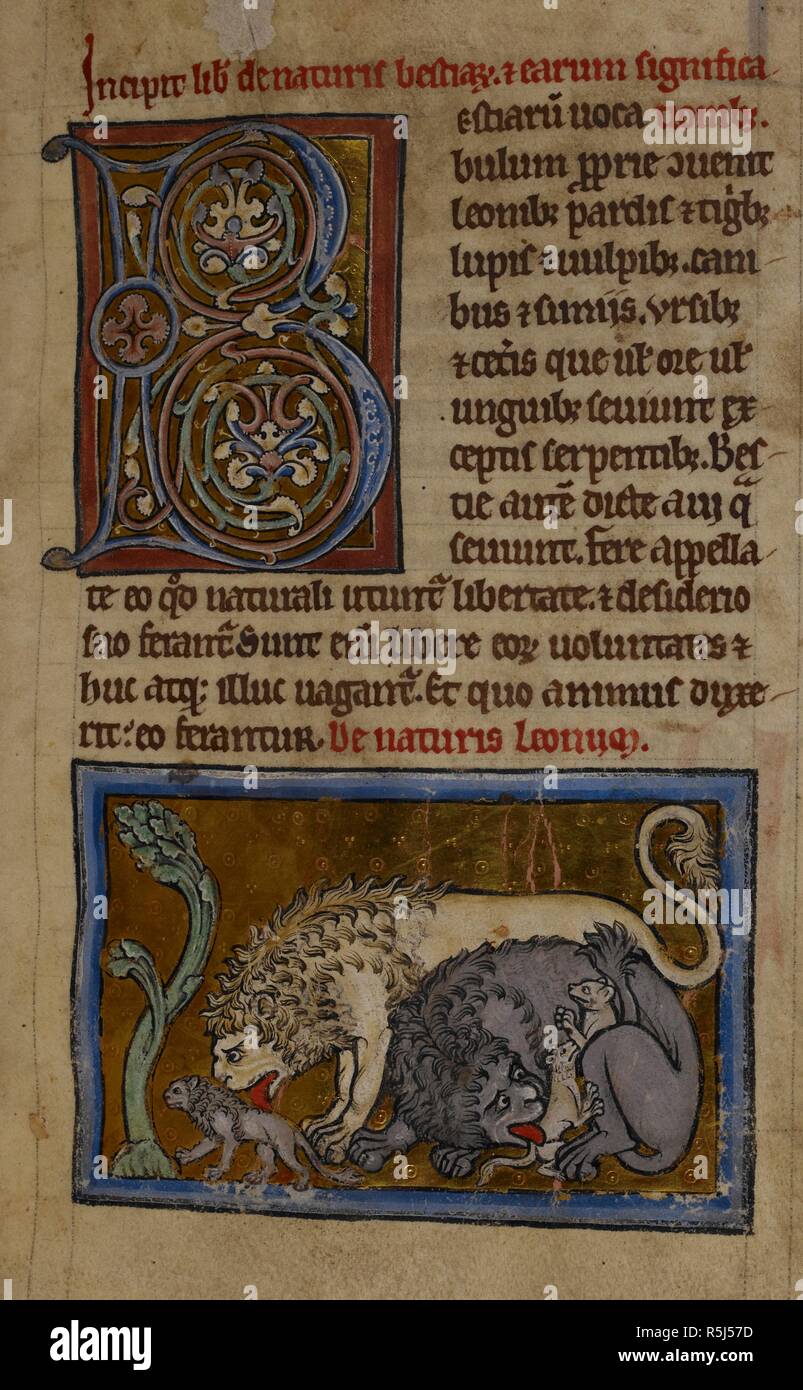 Incipit lib de naturis bestiaꝝ. ⁊ earum significa
B estiarū uoca tionibꝫ.
bulum ꝓprie ↄuenit
leonibꝫ pardis ⁊ tig̍bꝫ
lupis ⁊ uulpibꝫ. cani
bus ⁊ simijs. vrsibꝫ
⁊ cet̍is que uł ore uł
unguibꝫ seuiunt ex
ceptis serpentibꝫ. Bes
tie autē dicte a ui q̄
seuiunt. fere appella
te eo qd̓ naturali utunt̄ libertate. ⁊ desiderio
suo ferant̄ Sunt eni libere eoꝝ uoluntates ⁊
huc atqꝫ illuc uagant̄. Et quo animus duxe
rit: eo ferantur. De naturis leonum.
alamy
Image ID: R5J57D
www.alamy.com